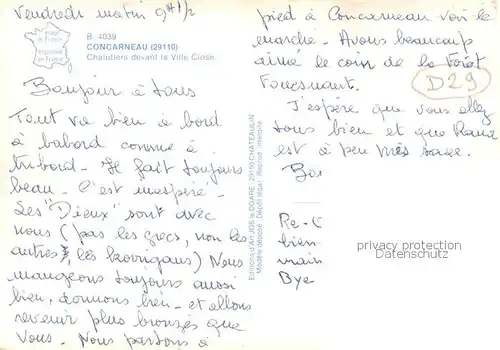 Vendredi matin 9H 1/2
B. 4039
CONCARNEAU (29110)
Chalutiers devant la Ville Close
Bonjour à tous
Tout va bien à bord
à babord comme à
tribord - Il fait toujours
beau - C'est inespéré -
Les "Dieux" sont avec
nous (pas les grecs, non les
autres, les korrigans) Nous
mangeons toujours aussi
bien, dormons bien - et allons
revenir plus bronzés que
vous. Nous partons à
pied à Concarneau voir le
marché - Avons beaucoup
aimé le coin de la Forêt
Fouesnant.
D29
J'espère que vous allez
tous bien et que
est à peu près sage.
Re-
bien
Bye
Editions d'Art JOS le DOARE - 29150 CHATEAULIN
Modèle déposé Dépôt légal Reprod. interdite
privacy protection
Datenschutz